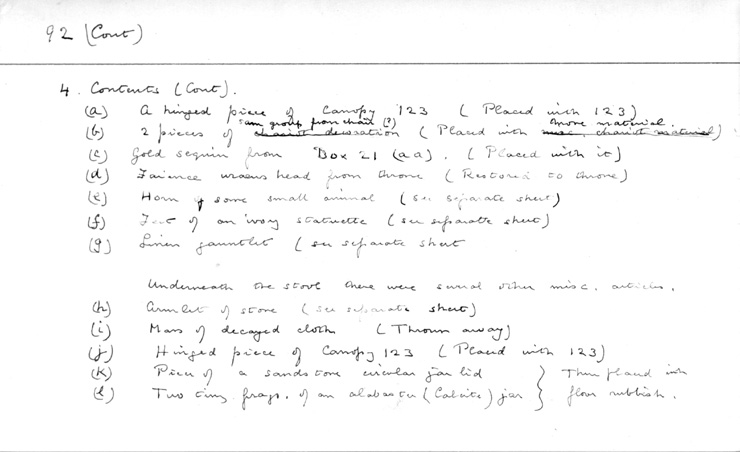 92 (Cont)
4. Contents (Cont).
(a) A hinged piece of Canopy 123 (Placed with 123)
sam group from chair (?) throne material.
(b) 2 pieces of chariot decoration (Placed with misc. chariot material)
(c) Gold sequin from Box 21 (aa). (Placed with it)
(d) Faience uraeus head from throne (Restored to throne)
(e) Horn of some small animal (see separate sheet)
(f) Feet of an ivory statuette (see separate sheet)
(g) Linen gauntlet (see separate sheet
Underneath the stool there were several other misc. articles.
(h) Armlet of stone (see separate sheet)
(i) Mass of decayed cloth (Thrown away)
(j) Hinged piece of Canopy 123 (Placed with 123)
(k) Piece of a sandstone circular jar lid } Then placed with
(l) Two tiny frags. of an alabaster (Calcite) jar } floor rubbish.